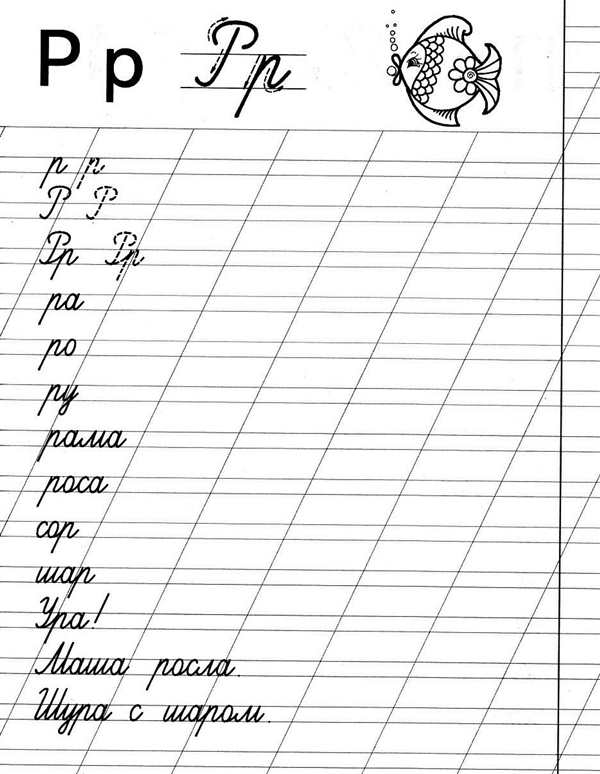 Р р Рр
р р
Р Р
Рр Рр
ра
ро
ру
рама
роса
сор
шар
Ура!
Маша росла.
Шура с шаром.